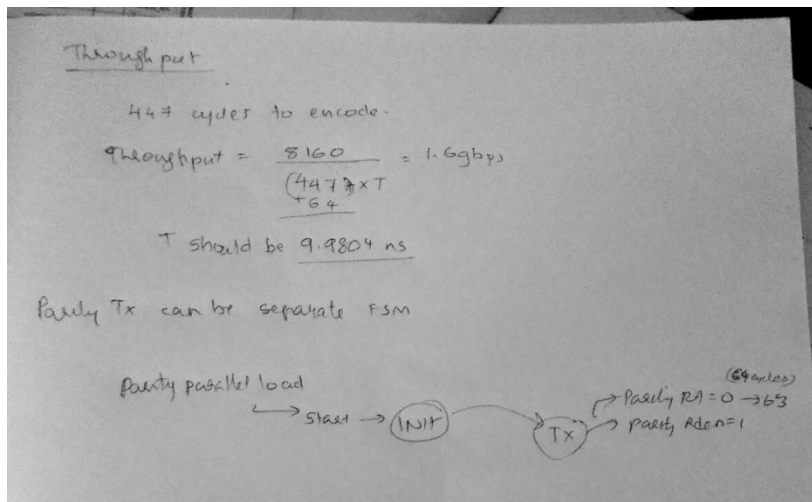 Throughput
447 cycles to encode.
Throughput = 8160 / (447 + 64) x T = 1.6gbps
T should be 9.9804 ns
Parity Tx can be separate FSM
parity parallel load
(64 cycles)
→ start → INIT → Tx → Parity RA = 0 → 63
→ parity Rden = 1